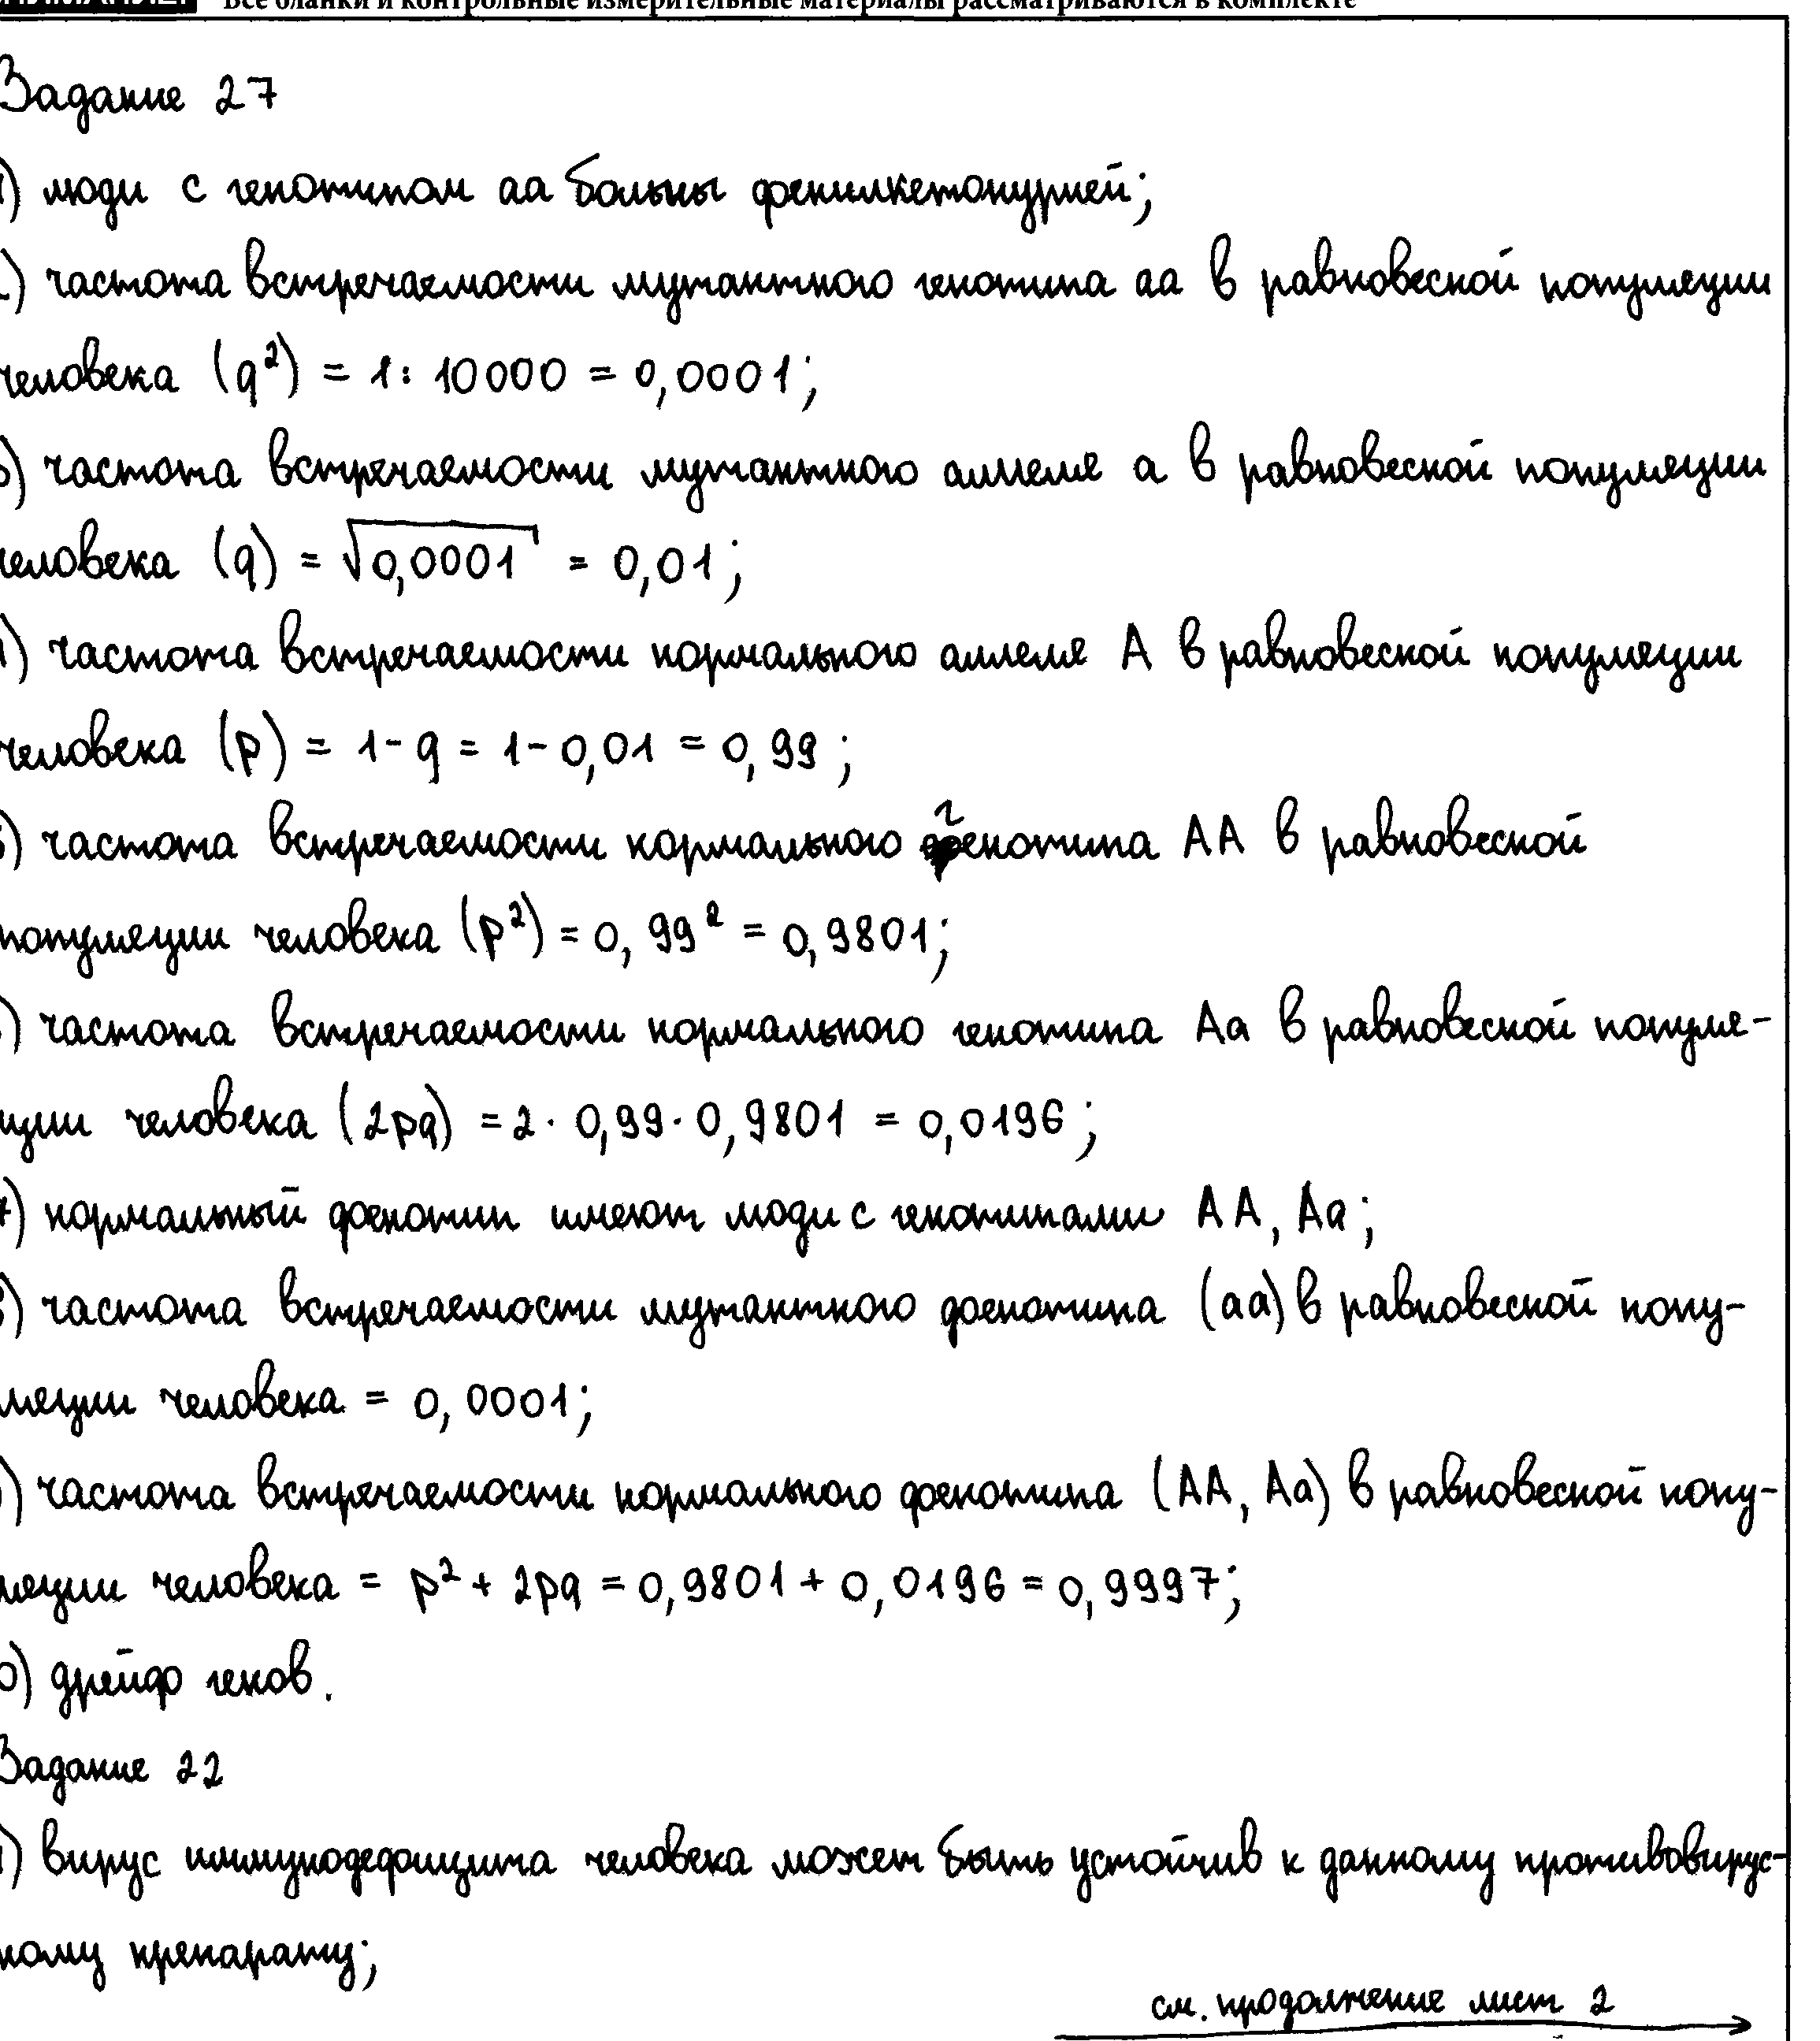 Все бланки и контрольные измерительные материалы рассматриваются в комплекте
Задание 27
) люди с генотипом аа больны фенилкетонурией;
) частота встречаемости мутантного генотипа аа в равновесной популяции
человека (q²) = 1 : 10000 = 0,0001;
) частота встречаемости мутантного аллеля а в равновесной популяции
человека (q) = √0,0001 = 0,01;
) частота встречаемости нормального аллеля А в равновесной популяции
человека (p) = 1 - q = 1 - 0,01 = 0,99;
) частота встречаемости нормального генотипа АА в равновесной
популяции человека (p²) = 0,99² = 0,9801;
) частота встречаемости нормального генотипа Аа в равновесной популя-
ции человека (2pq) = 2 · 0,99 · 0,9801 = 0,0196;
) нормальный фенотип имеют люди с генотипами АА, Аа;
) частота встречаемости мутантного фенотипа (аа) в равновесной попу-
ляции человека = 0,0001;
) частота встречаемости нормального фенотипа (АА, Аа) в равновесной попу-
ляции человека = p² + 2pq = 0,9801 + 0,0196 = 0,9997;
0) дрейф генов.
Задание 22
) вирус иммунодефицита человека может быть устойчив к данному противовирус-
ному препарату;
см. продолжение лист 2